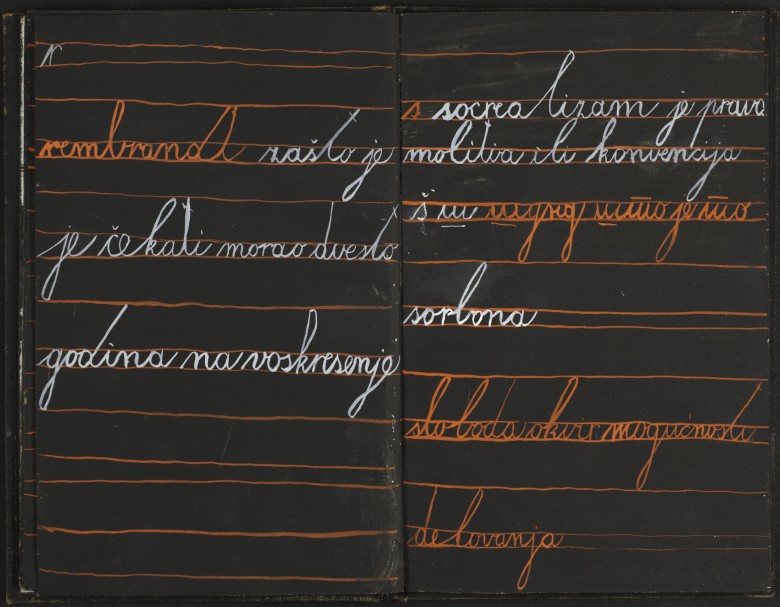 r
rembrandt zašto je
je čekati morao dvesto
godina na voskresenje
s socrea lizam je prava
molitva ili konvencija
š ш што је то
sorbona
sloboda okvir mogućnosti
delovanja